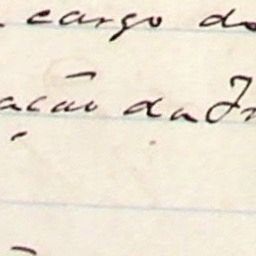 cargo do
ação da